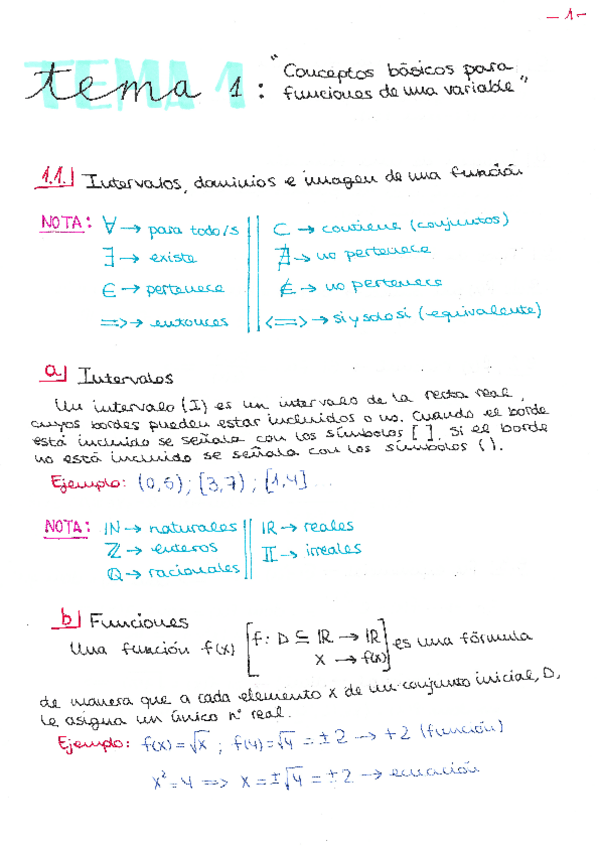 - 1 -
TEMA 1
tema 1: "Conceptos básicos para
funciones de una variable"
1.1. Intervalos, dominios e imagen de una función
NOTA: ∀ → para todo/s || ⊂ → contiene (conjuntos)
∃ → existe || ∄ → no pertenece
∈ → pertenece || ∉ → no pertenece
=> → entonces || <=> → si y solo si (equivalente)
a) Intervalos
Un intervalo (I) es un intervalo de la recta real,
cuyos bordes pueden estar incluidos o no. Cuando el borde
está incluido se señala con los símbolos [ ]. Si el borde
no está incluido se señala con los símbolos ( ).
Ejemplo: (0,5); [3,7); [1,4]
NOTA: ℕ → naturales || ℝ → reales
ℤ → enteros || 𝕀 → irreales
ℚ → racionales
b) Funciones
Una función f(x) [f: D ⊆ ℝ → ℝ
x → f(x)] es una fórmula
de manera que a cada elemento x de un conjunto inicial, D,
le asigna un único nº real.
Ejemplo: f(x) = √x ; f(4) = √4 = ±2 → +2 (función)
x² = 4 => x = ±√4 = ±2 → ecuación